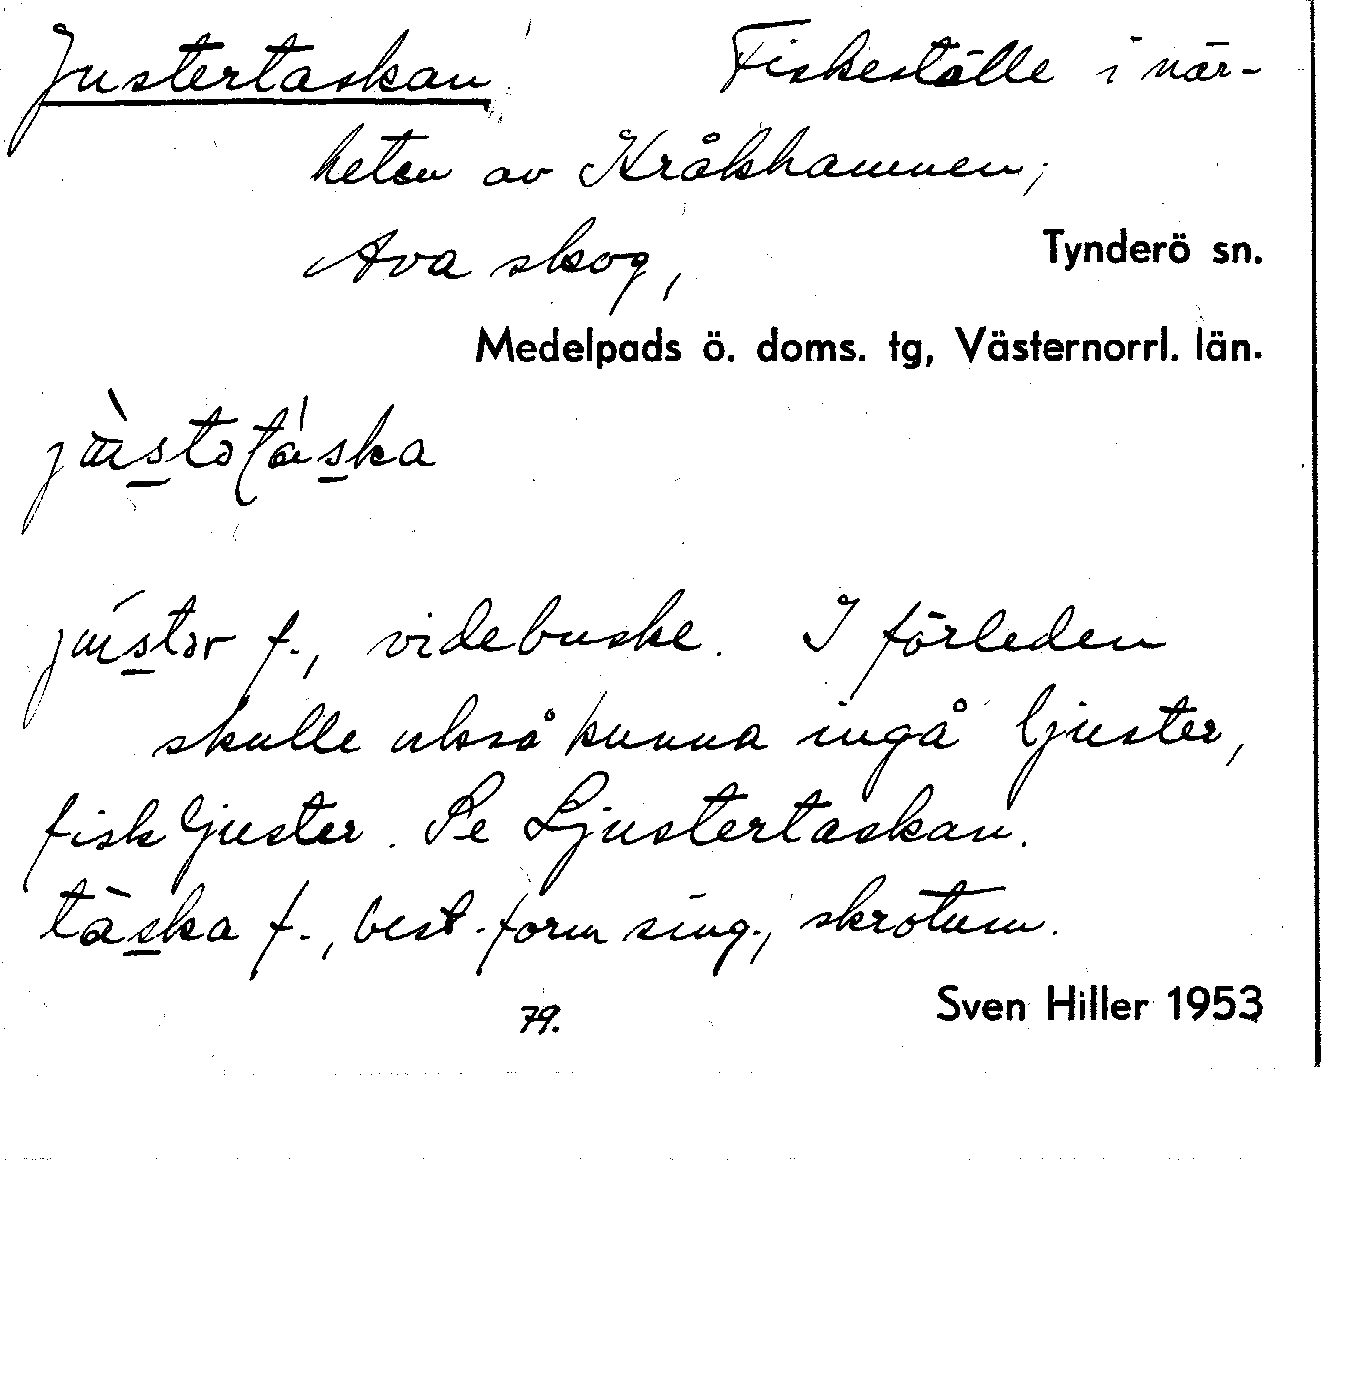 Justertaskan Fiskeställe i när-
heten av Kråkhamnen;
Ava skog, Tynderö sn.
Medelpads ö. doms. tg, Västernorrl. län.
jùstətáska
jústər f., videbuske. I förleden
skulle också kunna ingå ljuster,
fiskljuster. Se Ljustertaskan.
tàska f., best. form sing., skrotum.
79. Sven Hiller 1953